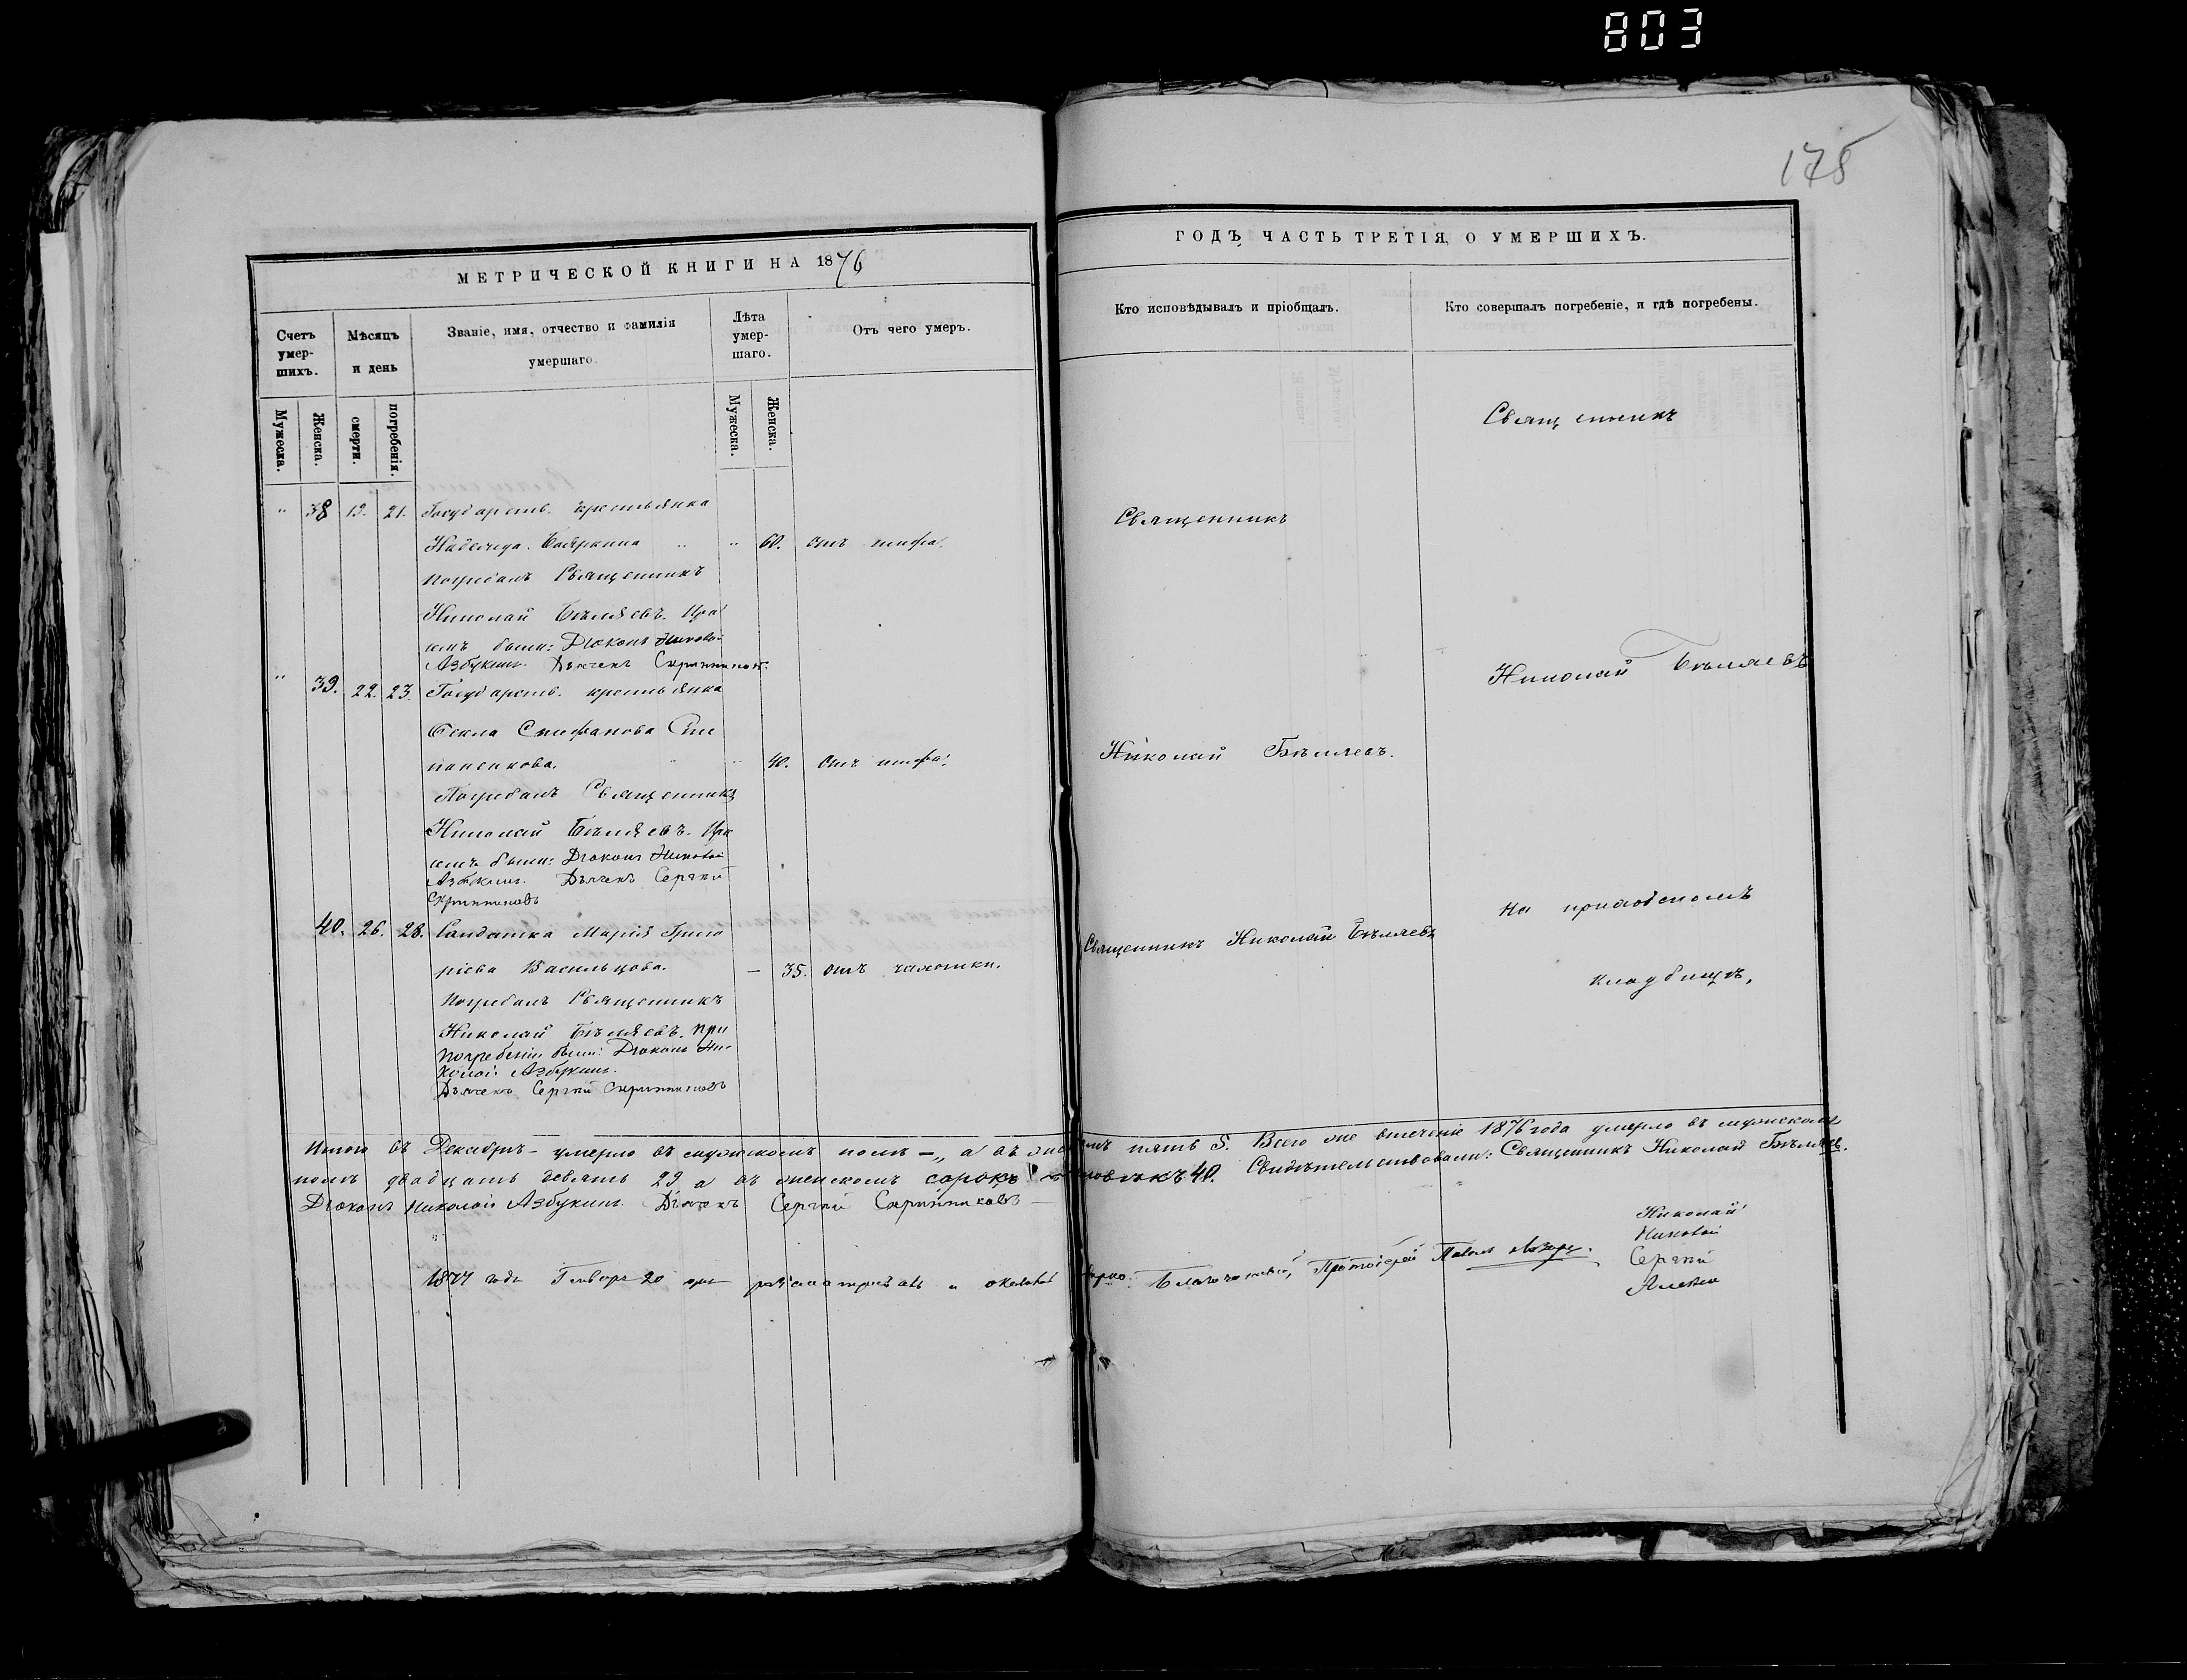 803
178
МЕТРИЧЕСКОЙ КНИГИ НА 1876
Счетъ умер-шихъ.
Мѣсяцъ и день
Званіе, имя, отчество и фамилія умершаго.
Лѣта умер-шаго.
Отъ чего умеръ.
Мужеска.
Женска.
смерти.
погребенія.
Мужеска.
Женска.
" 38 19. 21. Государств. крестьянка
Надежда " 60. отъ тифа.
Погребалъ Священникъ
Николай Бѣляевъ. При
семъ были: Діаконъ Николай
Азбукинъ. Дьячекъ Скрипниковъ.
" 39. 22. 23. Государств. крестьянка
Ѳекла Епифанова
40. отъ тифа.
Погребалъ Священникъ
Николай Бѣляевъ. При
семъ были: Діаконъ Николай
Азбукинъ. Дьячекъ Сергѣй
Скрипниковъ
40. 26. 28. Солдатка Марія Григо
ріева Васильцова. — 35. отъ чахотки.
Погребалъ Священникъ
Николай Бѣляевъ. При
погребеніи были: Діаконъ Ни-
колай Азбукинъ.
Дьячекъ Сергѣй Скрипниковъ
ГОДЪ, ЧАСТЬ ТРЕТІЯ, О УМЕРШИХЪ.
Кто исповѣдывалъ и пріобщалъ.
Кто совершалъ погребеніе, и гдѣ погребены.
Священникъ
Священникъ
Николай Бѣляевъ
Николай Бѣляевъ.
На приходскомъ
Священникъ Николай Бѣляевъ
кладбищѣ,
Итого въ Декабрѣ умерло въ мужскомъ полѣ — „ а въ женскомъ пять 5. Всего же втеченіе 1876 года умерло въ мужскомъ
полѣ двадцать девять 29 а въ женскомъ сорокъ 40. Свидѣтельствовали: Священникъ Николай Бѣляевъ.
Діаконъ Николай Азбукинъ. Дьячекъ Сергѣй Скрипниковъ
Николай
Николай
Сергѣй
Алексѣй
1877 года Генваря 20 дня Благочинный, Протоіерей Павелъ